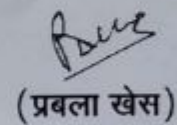 (प्रबला खेस)